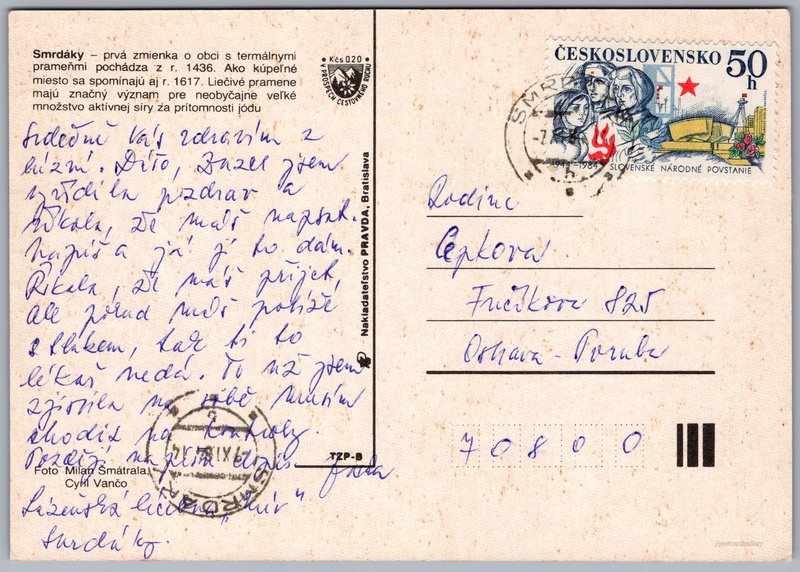 Smrdáky – prvá zmienka o obci s termálnymi
prameňmi pochádza z r. 1436. Ako kúpeľné
miesto sa spomínajú aj r. 1617. Liečivé pramene
majú značný význam pre neobyčajne veľké
množstvo aktívnej síry za prítomnosti jódu
Kčs 0,20
V PROSPECH CESTOVNÉHO RUCHU
ČESKOSLOVENSKO
50
h
1944–1984
SLOVENSKÉ NÁRODNÉ POVSTANIE
Srdečně Vás zdravím z
lázní.
jsem
vyřídila pozdrav a
říkala, že máš napsat.
Napiš a já jí to dám.
Říkala, že máš přijet,
ale pokud máš potíže
s tlakem, tak ti to
lékař nedá. To už jsem
zjistila na sobě musím
chodit na kontroly.
Později napíšu dopis
Lázeňská léčebna „Mír"
Smrdáky.
Nakladateľstvo PRAVDA, Bratislava
TZP-B
Foto Milan Šmátrala,
Cyril Vančo
SMRDÁKY
Rodina
Cepkova
Fučíkova 825
Ostrava-Poruba
70800